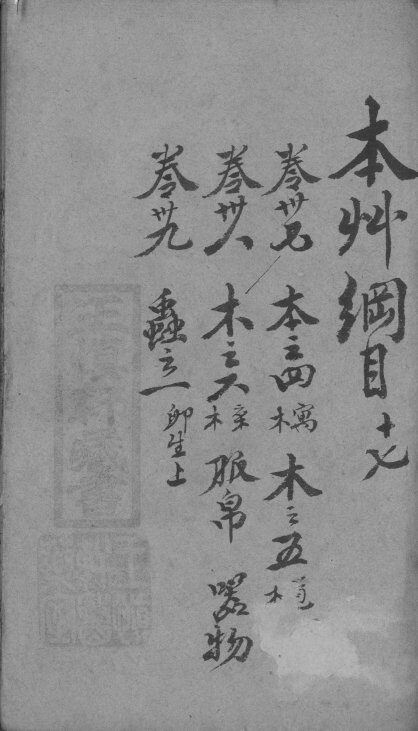 本艸綱目 十七
卷卅七 本之四 寓木 木之五 苞木
卷卅八 木之六 襍木 服帛 器物
卷卅九 蟲之一 卵生上